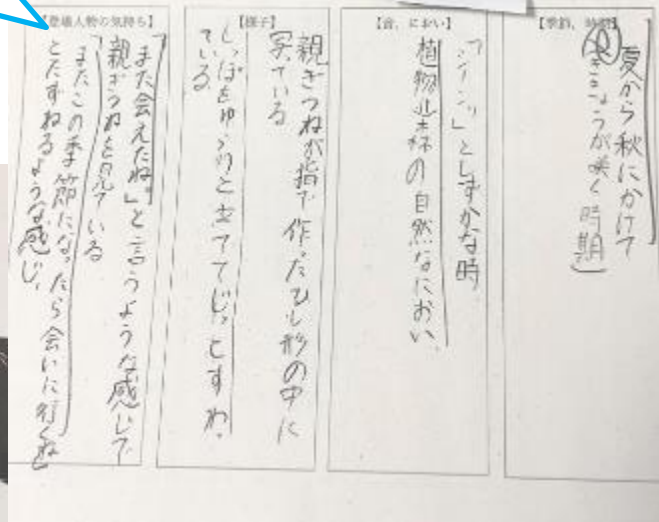 【季節、時間】
夏から秋にかけて
(ききょうが咲く時期)
【音、におい】
「シーンッ」としずかな時
植物や森の自然なにおい
【様子】
親ぎつねが指で作ったひし形の中に
写っている
しっぽをゆらりと立ててじっとすわっ
ている
【登場人物の気持ち】
「また会えたね。」と言うような感じで
親ぎつねを見ている
「またこの季節になったら会いに行くね」
とたずねるような感じ。